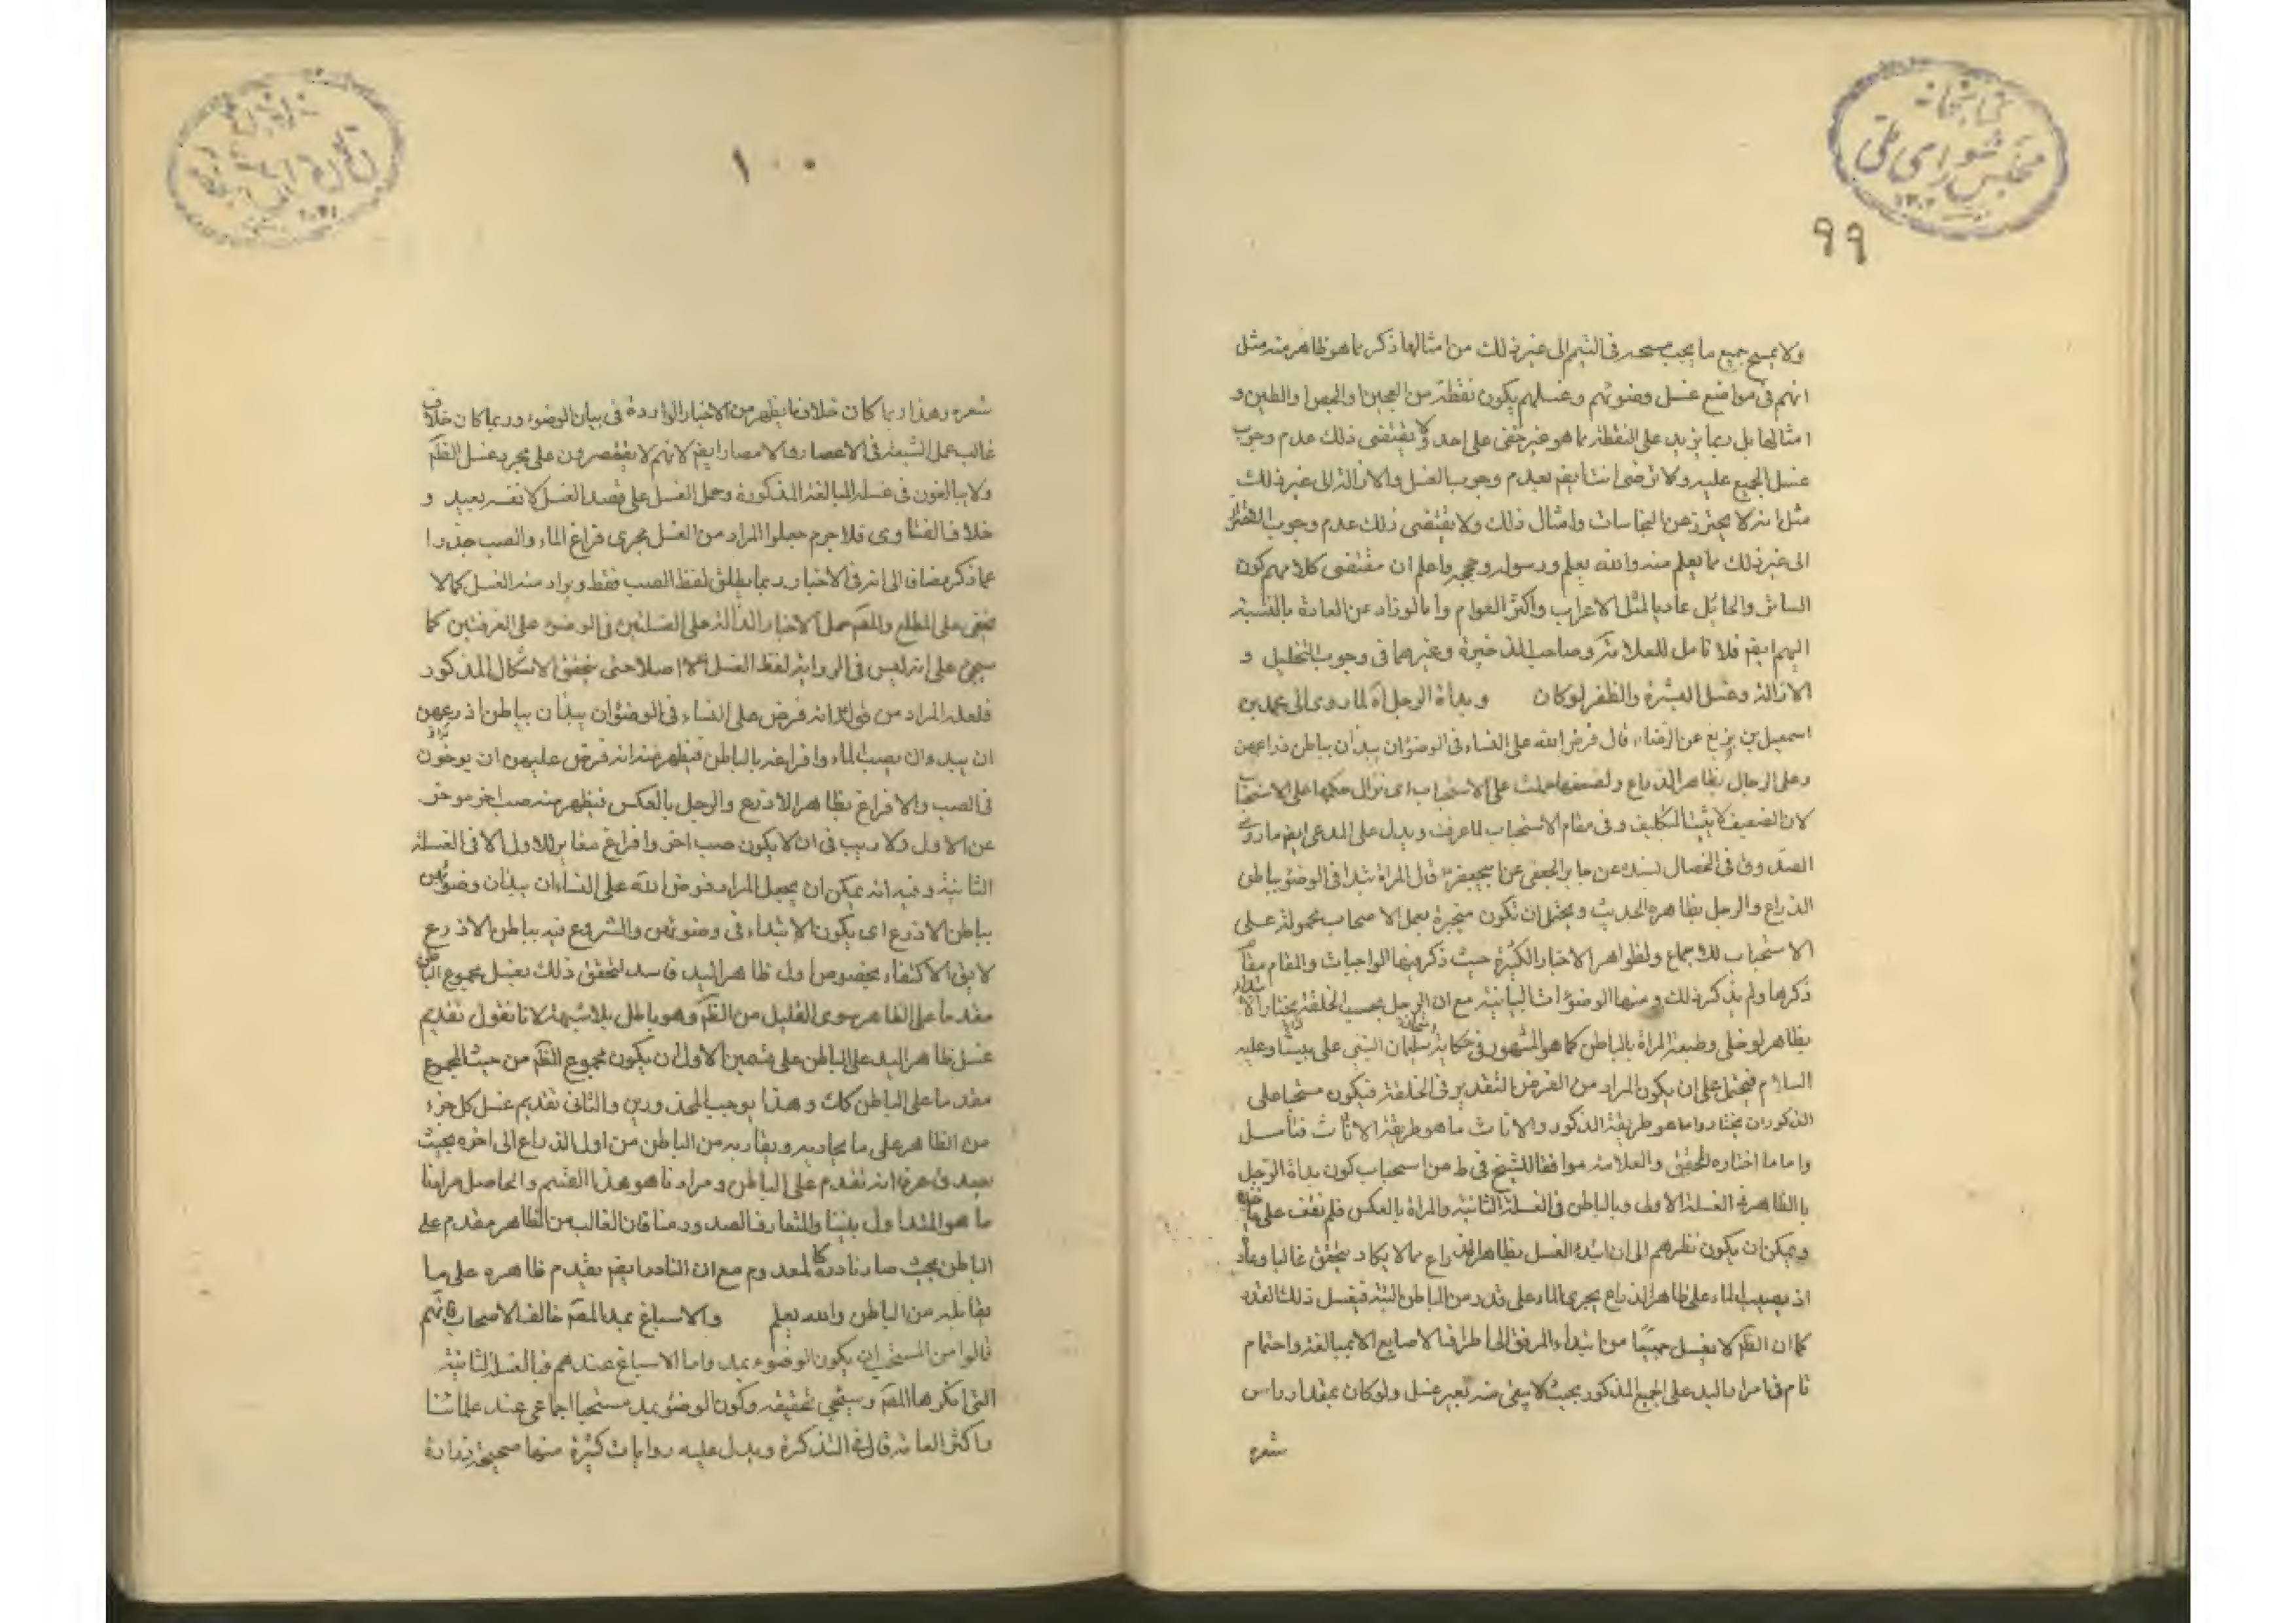 كتابخانه
مجلس شورای ملی
۱۳۰۲
۹۹
ولا يمسح جميع ما يجب مسحه في التيمم الى غير ذلك من امثالها ذكر ما هو ظاهر منه مثل
انهم في مواضع غسل وضوئهم وغسلهم يكون نقطة من العجين والجص والطين و
امثالها بل ربما يزيد على النقطة ما هو غير خفي على احد ولا يقتضى ذلك عدم وجوب
غسل الجميع عليه ولا نرضى ايضا بعدم وجوب الغسل والازالة الى غير ذلك
مثل انه لا يحترز عن النجاسات وامثال ذلك ولا يقتضى ذلك عدم وجوب التحرز
الى غير ذلك مما يعلم منه والله يعلم ورسوله وحججه واعلم ان مقتضى كلامهم كون
الساتر والحائل عاديا لمثل الاعراب واكثر العوام واما لو زاد عن العادة بالنسبة
اليهم ايضم فلا تامل للعلامة وصاحب الذخيرة وغيرهما في وجوب التخليل و
الازالة وغسل البشرة والظفر لو كان وبدأة الرجل آه لما روى الى محمد بن
اسمعيل بن بزيع عن الرضاء قال فرض الله على النساء في الوضوء ان يبدأن بباطن ذراعهن
وعلى الرجال بظاهر الذراع ولضعفها حملت على الاستحباب اى نزال حكمها على الاستحباب
لان الضعيف لا يثبت التكليف وفي مقام الاستحباب لما عرفت ويدل على المدعى ايضم ما روى
الصدوق في الخصال بسنده عن جابر الجعفى عن ابيجعفر قال المراة تبدا في الوضوء بباطن
الذراع والرجل بظاهره الحديث ويحتمل ان تكون منجبرة بعمل الاصحاب محمولة على
الاستحباب للاجماع ولظواهر الاخبار الكثيرة حيث ذكر فيها الواجبات والمقام مقام
ذكرها ولم يذكر ذلك ومنها الوضوءات البيانية مع ان الرجل بحسب الخلقة يختار الابتداء
بظاهر لو خلى وطبعه المراة بالباطن كما هو المشهور في حكاية سليمان النبى على نبينا وعليه
السلام فيحتمل على ان يكون المراد من الفرض التقدير في الخلقة فيكون مستحبا على
الذكور ان يختاروا ما هو طريقة الذكور والاناث ما هو طريقة الاناث فتأمل
واما ما اختاره المحقق والعلامة موافقا للشيخ في ط من استحباب كون بدأة الرجل
بالظاهر في الغسلة الاولى وبالباطن في الغسلة الثانية والمراة بالعكس فلم نقف على ماخذه
ويمكن ان يكون نظرهم الى ان ابتداء الغسل بظاهر الذراع مما لا يكاد يتحقق غالبا وعادة
اذ بصب الماء على ظاهر الذراع يجرى الماء على قدر من الباطن البتة فيغسل ذلك القدر
كما ان الظهر لا يغسل جميعا من ابتداء المرفق الى اطراف الاصابع الا بمبالغة واحتمام
تام في امرار اليد على الجميع المذكور بحيث لا يبقى منه بغير غسل ولو كان بمقدار راس
شعره
۱۰۰
شعره وهذا ربما كان خلاف ما يظهر من الاخبار الواردة في بيان الوضوء وربما كان خلاف
غالب عمل الشيعة في الاعصار والامصار ايضم لانهم لا يقتصرون على مجرد غسل الظهر
ولا يبالغون في غسله المبالغة المذكورة وحمل الغسل على قصد الغسل لا نفسه بعيد و
خلاف الفتاوى فلا جرم جعلوا المراد من الغسل مجرى فراغ الماء والصب حذرا
عما ذكر مضافا الى انه في الاخبار ربما يطلق لفظ الصب فقط ويراد منه الغسل كما لا
يخفى على المطلع والمصم حمل الاخبار الدالة على الغسلتين في الوضوء على الغرفتين كما
سيجئ على انه ليس في الرواية لفظ الغسل اصلا حتى يتحقق الاشكال المذكور
فلعله المراد من قوله انه فرض على النساء في الوضوء ان يبدأن بباطن اذرعهن
ان يبدءان بصب الماء وافراغه بالباطن فيظهر منه انه فرض عليهن ان يوخرن
في الصب والافراغ بظاهر الاذرع والرجل بالعكس فيظهر منه صب اخر موخر
عن الاول ولا ريب في ان لا يكون صب اخر وافراغ مغاير للاول الا في الغسلة
الثانية وفيه انه يمكن ان يجعل المراد فرض الله على النساء ان يبدأن وضوئهن
بباطن الاذرع اى يكون الابتداء في وضوئهن والشروع فيه بباطن الاذرع
لا يق الاكتفاء بخصوص اول ظاهر اليد فاسد لتحقق ذلك بغسل مجموع الباطن
مقدما على الظاهر سوى القليل من الظهر وهو باطل بلا شبهة لانا نقول تقديم
غسل ظاهر اليد على الباطن على قسمين الاول ان يكون مجموع الظهر من حيث المجموع
مقدما على الباطن كك وهذا يوجب المحذورين والثانى تقديم غسل كل جزء
من الظاهر على ما يحاذيه ويقاربه من الباطن من اول الذراع الى اخره بحيث
يصدق عرفا انه تقدم على الباطن ومرادنا هو هذا القسم والحاصل مرادنا
ما هو المتداول بيننا والمتعارف الصدور منا فان الغالب من الظاهر مقدم على
الباطن بحيث صار نادره كالمعدوم مع ان النادر ايضم يقدم ظاهره على ما
يقابله من الباطن والله يعلم والاسباغ بمد المصم خالف الاصحاب فانهم
قالوا من المستحب ان يكون الوضوء بمد واما الاسباغ عندهم فبالغسلة الثانية
التى انكرها المصم وسيجئ تحقيقه وكون الوضوء بمد مستحبا اجماعى عند علمائنا
واكثر العامة قاله في التذكرة ويدل عليه روايات كثيرة منها صحيحة زرارة